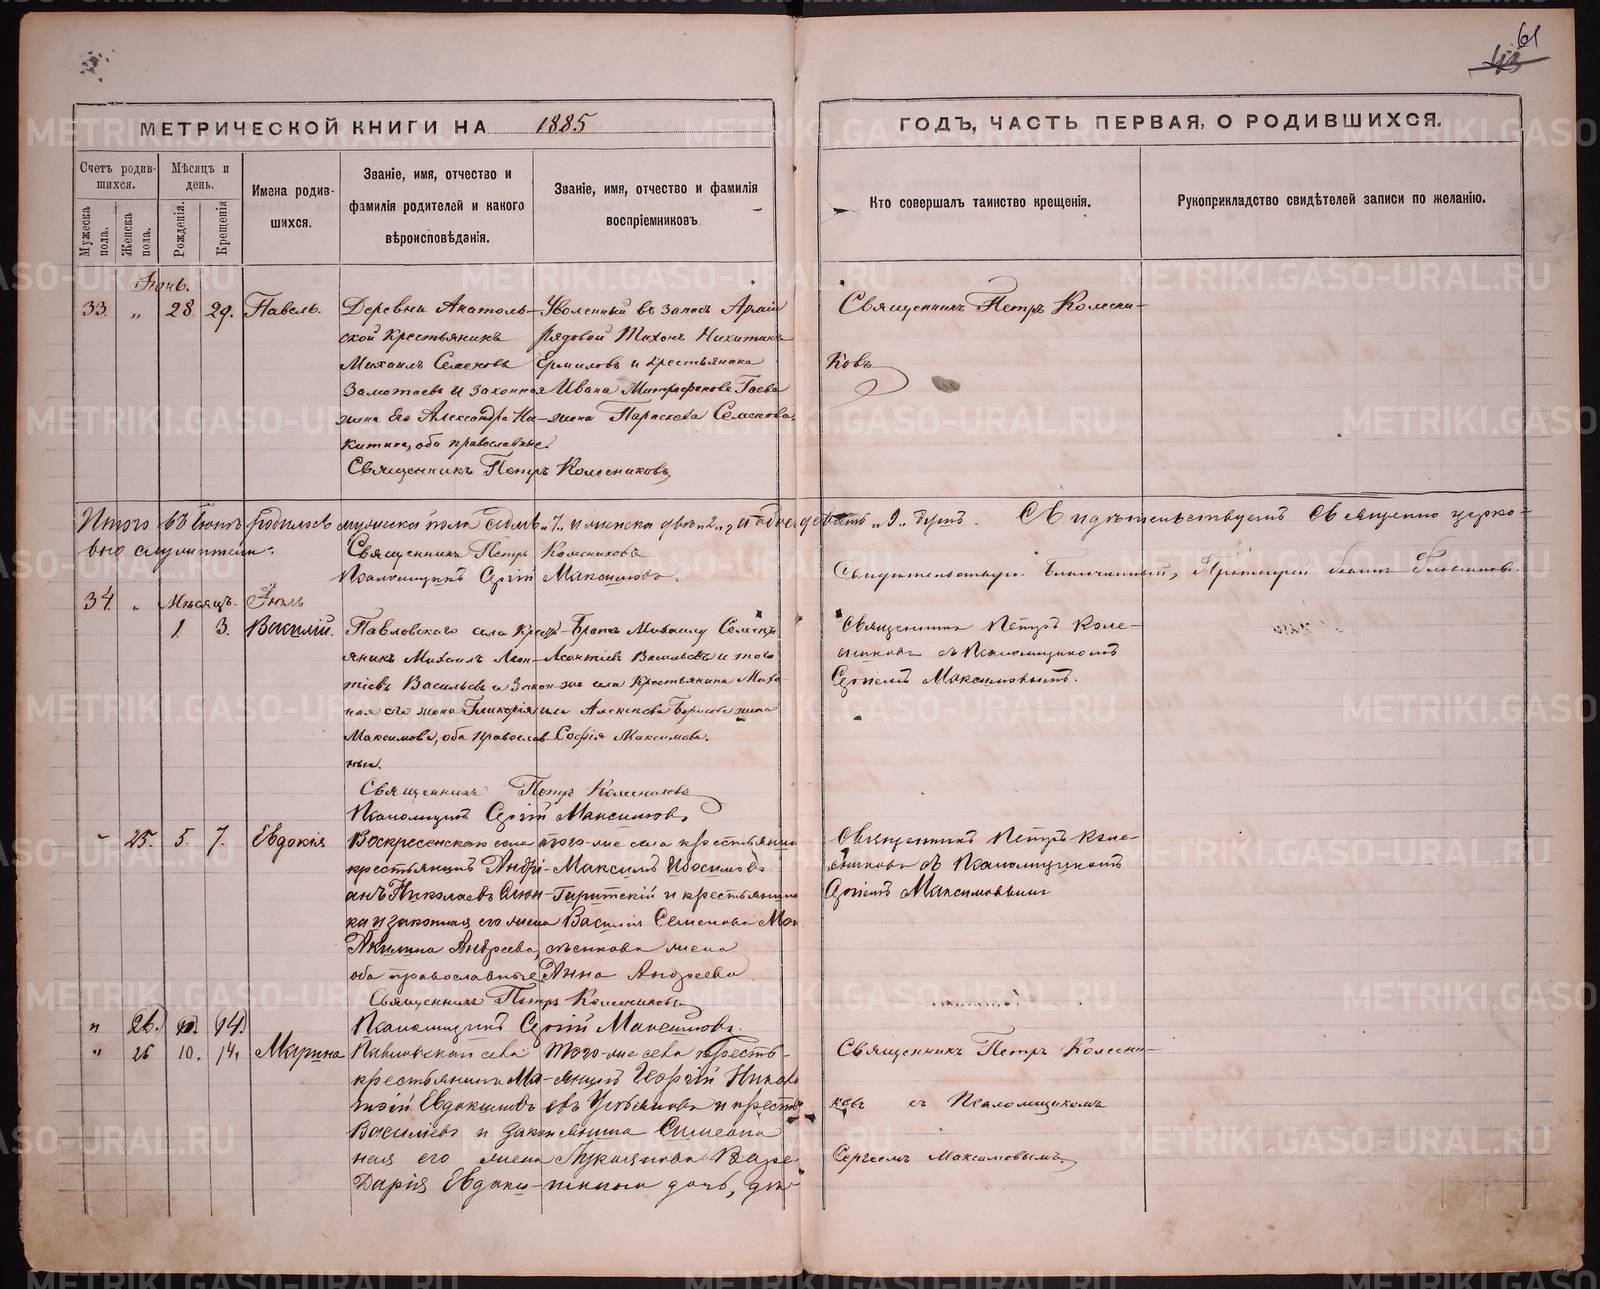 61
МЕТРИЧЕСКОЙ КНИГИ НА 1885
ГОДЪ, ЧАСТЬ ПЕРВАЯ, О РОДИВШИХСЯ.
Счетъ родив-
шихся.
Мужеска пола.
Женска пола.
Мѣсяцъ и
день.
Рожденія.
Крещенія
Имена родив-
шихся.
Званіе, имя, отчество и
фамилія родителей и какого
вѣроисповѣданія.
Званіе, имя, отчество и фамилія
воспріемниковъ.
Кто совершалъ таинство крещенія.
Рукоприкладство свидѣтелей записи по желанію.
Іюнь.
33. " 28. 29. Павелъ.
Деревни Анатоль-
ской Крестьянинъ
Михаилъ Семеновъ
Замотаевъ и законная
жена его Александра Ни-
китина, оба православные
Священникъ Петръ Колесниковъ
Уволенный въ запасъ Арміи
Рядовой Тихонъ Никитинъ
Ермиловъ и крестьянина
Ивана Митрофанова Гаева
жена Параскева Семенова.
Священникъ Петръ Колесни-
ковъ
Итого въ Іюнѣ родилось мужеска пола семь "7" и женска двѣ "2", а обоего девять "9" душъ. Свидѣтельствуемъ Священно церко-
вно служители:
Священникъ Петръ Колесниковъ
Псаломщикъ Сергій Максимовъ.
Свидѣтельствую. Благочинный, Протоіерей
34. " Мѣсяцъ. Іюль
1. 3. Василій.
Павловскаго села Крест-
янинъ Михаилъ Леон-
тіевъ Васильевъ и Закон-
ная его жена Гликерія
Максимова, оба православ-
ные.
Священникъ Петръ Колесниковъ
Псаломщикъ Сергій Максимовъ
Братъ Михаилу Семенъ
Леонтіевъ Васильевъ и того
же села Крестьянина Миха-
ила Алексѣева Борисова жена
Софія Максимова.
Священникъ Петръ Коле-
сниковъ съ Псаломщикомъ
Сергіемъ Максимовымъ.
" 25. 5. 7. Евдокія
Воскресенскаго села
крестьянинъ Андрі-
анъ Николаевъ
и законная его жена
Акилина Андреева,
оба православные
Священникъ Петръ Колесниковъ
Псаломщикъ Сергій Максимовъ.
того-же села крестьянинъ
Максимъ
и крестьянина
Василія Семенова
жена
Анна Андреева
Священникъ Петръ Коле-
сниковъ съ Псаломщикомъ
Сергіемъ Максимовымъ
" 26. 10. 14.
" 26 10. 14. Марина
Павловскаго села
крестьянинъ Ма-
твѣй Евдокимовъ
Васильевъ и закон-
ная его жена
Дарія Евдоки-
Того-же села кресть-
янинъ Георгій Никола-
евъ Устьянцовъ и кресть-
янина Симеона
Лукоянова
дочь, дѣ-
Священникъ Петръ Колесни-
ковъ съ Псаломщикомъ
Сергіемъ Максимовымъ.
METRIKI.GASO-URAL.RU